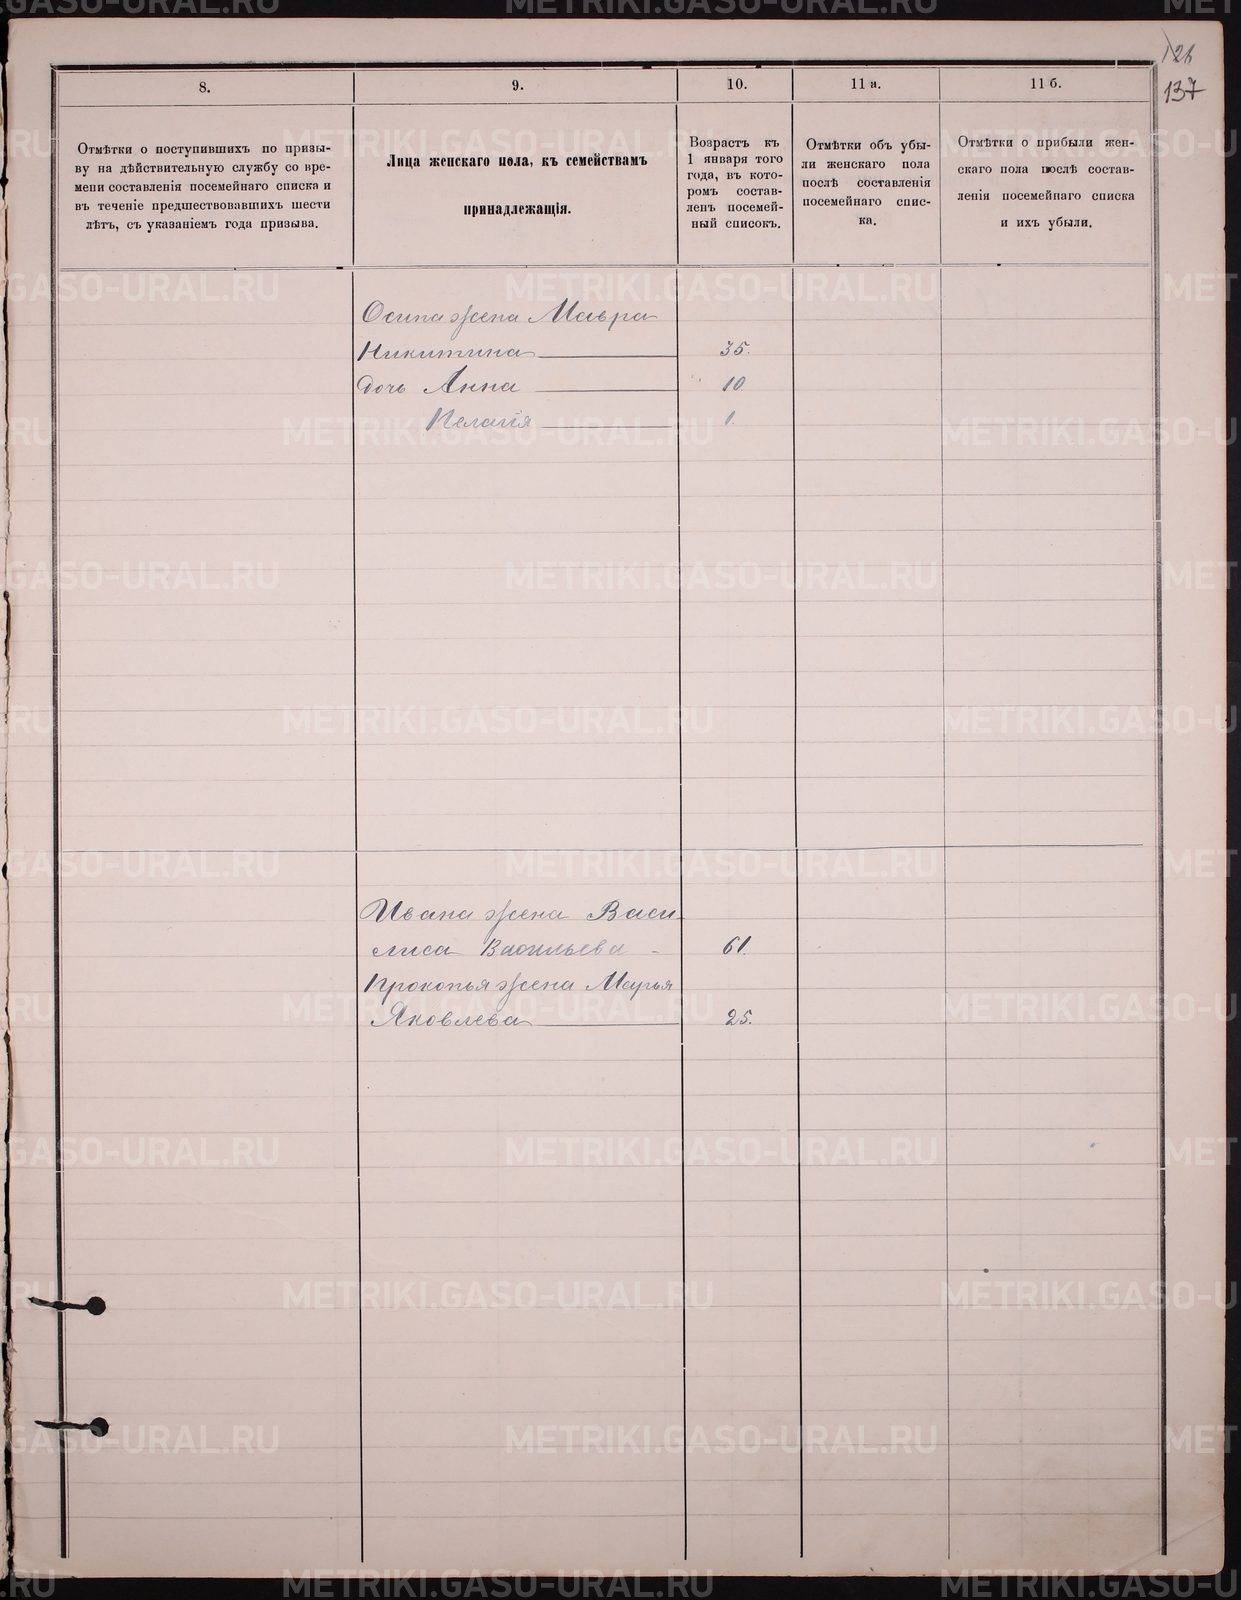 126
137
8.
9.
10.
11 а.
11 б.
Отмѣтки о поступившихъ по призы-
ву на дѣйствительную службу со вре-
мени составленія посемейнаго списка и
въ теченіе предшествовавшихъ шести
лѣтъ, съ указаніемъ года призыва.
Лица женскаго пола, къ семействамъ
принадлежащія.
Возрастъ къ
1 января того
года, въ кото-
ромъ состав-
ленъ посемей-
ный списокъ.
Отмѣтки объ убы-
ли женскаго пола
послѣ составленія
посемейнаго спис-
ка.
Отмѣтки о прибыли жен-
скаго пола послѣ состав-
ленія посемейнаго списка
и ихъ убыли.
Осипа жена Мавра
Никитина 35.
дочь Анна 10
Пелагія 1.
Ивана жена Васи
лиса Васильева - 61.
Прокопья жена Марья
Яковлева 25.
METRIKI.GASO-URAL.RU